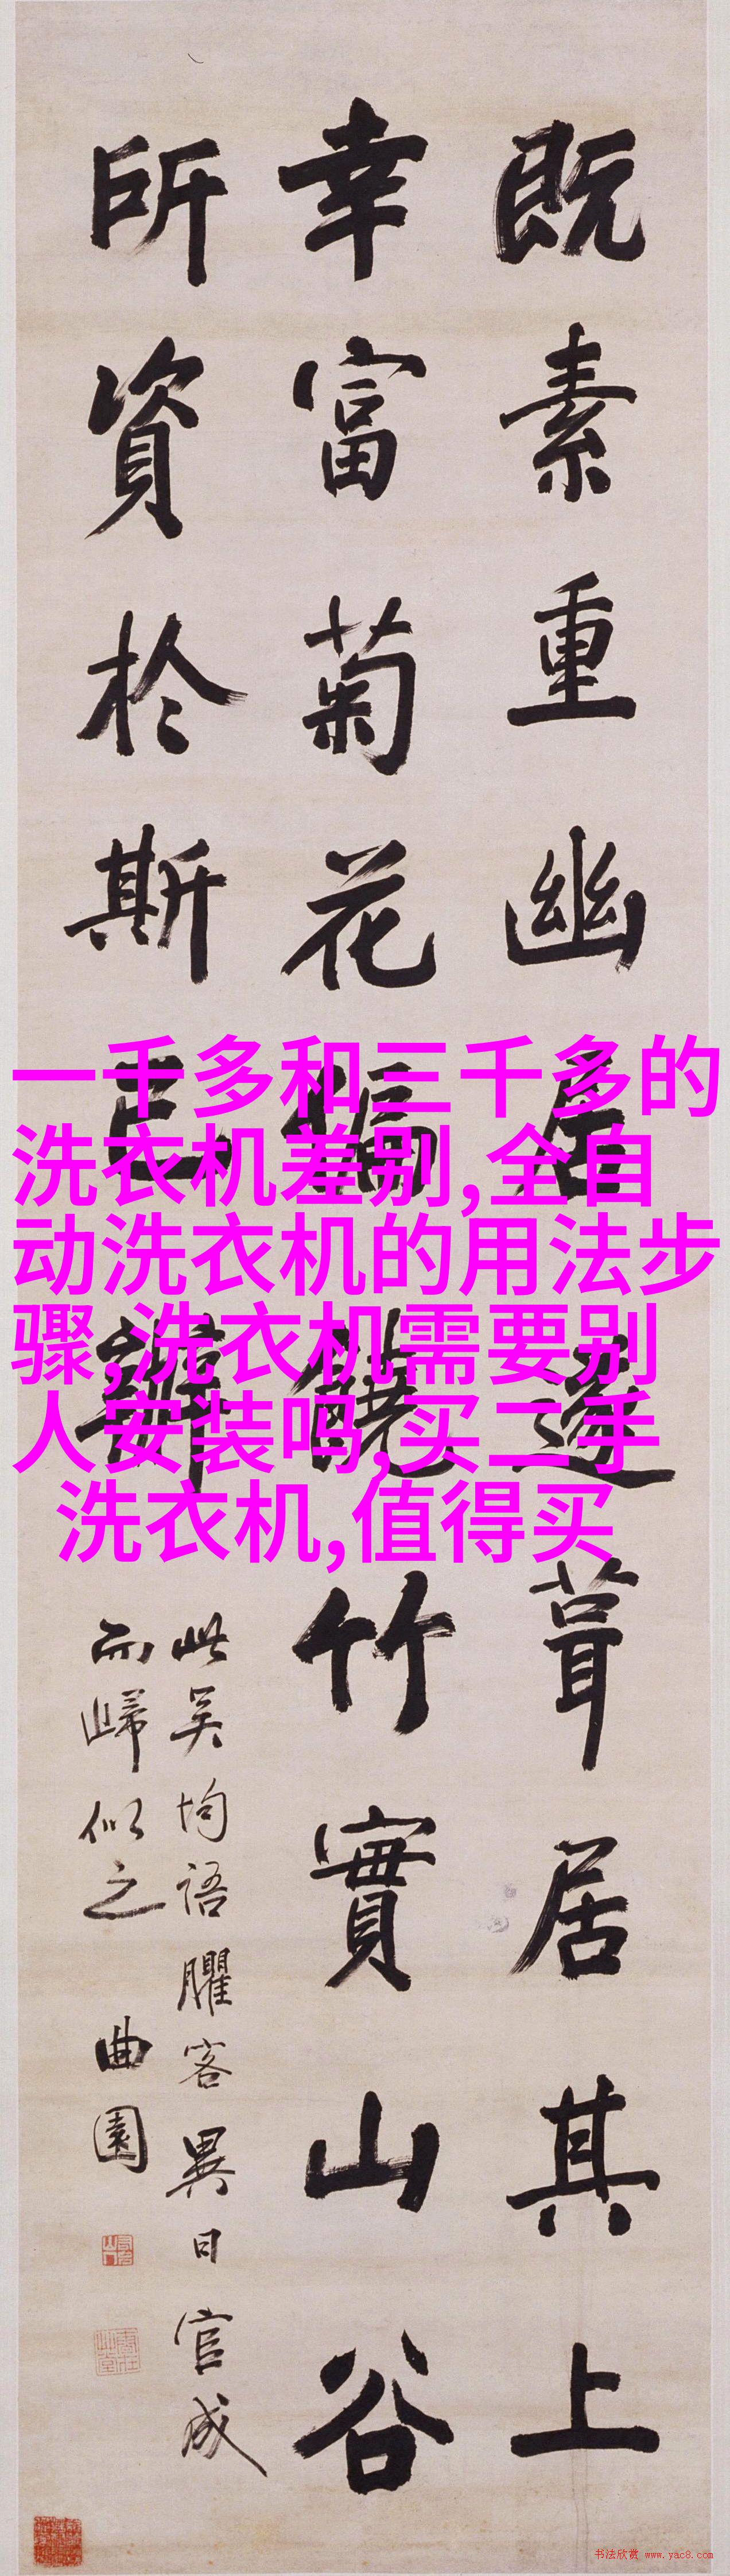 既素重幽居遂葺居其上
幸富菊花偏饒竹實山谷
所資於斯已辦
此吴均語臞客異日官成
而歸似之 曲園
一千多和三千多的
洗衣机差别,全自
动洗衣机的用法步
骤,洗衣机需要别
人安装吗,买二手
洗衣机,值得买
书法欣赏 www.yac8.com